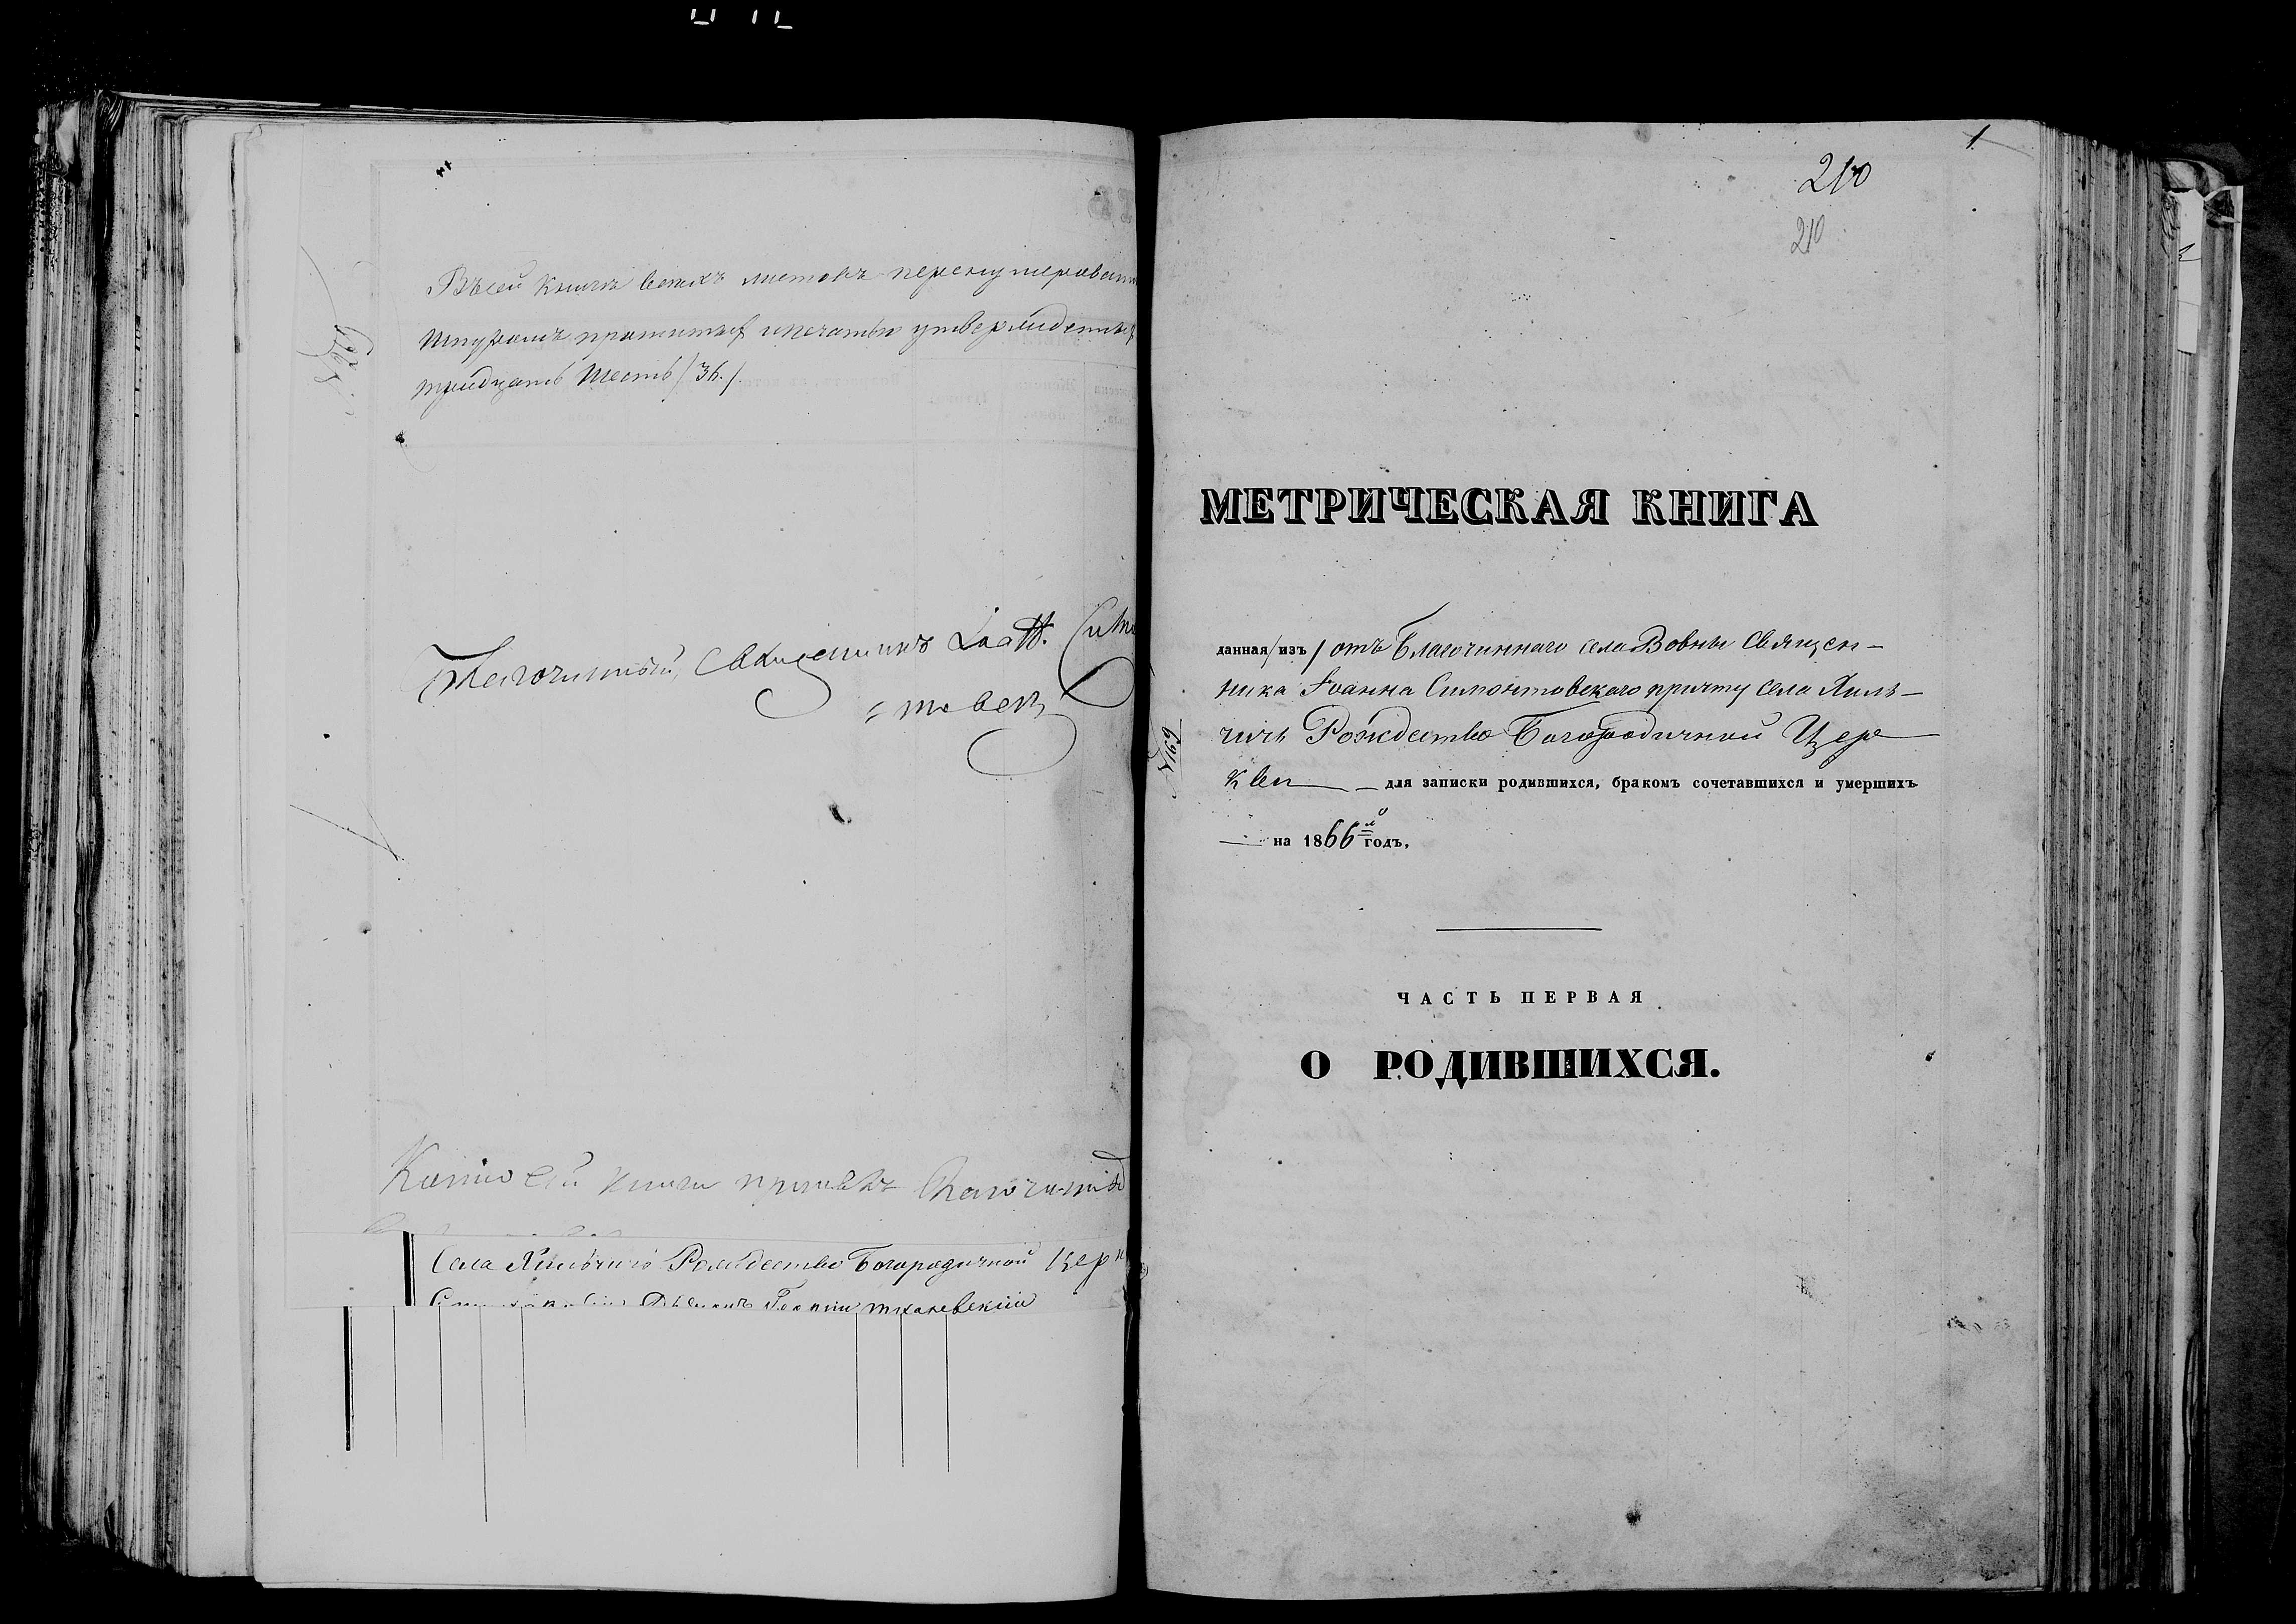 Въ сей книгѣ всѣхъ листовъ перенумерован
шнуромъ прошитыхъ и печатью утвержденных
тридцать шесть / 36. /
Благочинный, Священникъ Іоаннъ Симо
= товскі
Копію сей книги принялъ благочин
Села Хильчичь Рождество Богородичной Церк
Дьяконъ
210
1
210
МЕТРИЧЕСКАЯ КНИГА
данная / изъ / отъ Благочиннаго села Вовны Священ-
ника Іоанна Симонтовскаго причту села Хиль-
чичь Рождество Богородичной Цер
кви — для записки родившихся, бракомъ сочетавшихся и умершихъ
на 1866й годъ.
№169
ЧАСТЬ ПЕРВАЯ
О РОДИВШИХСЯ.